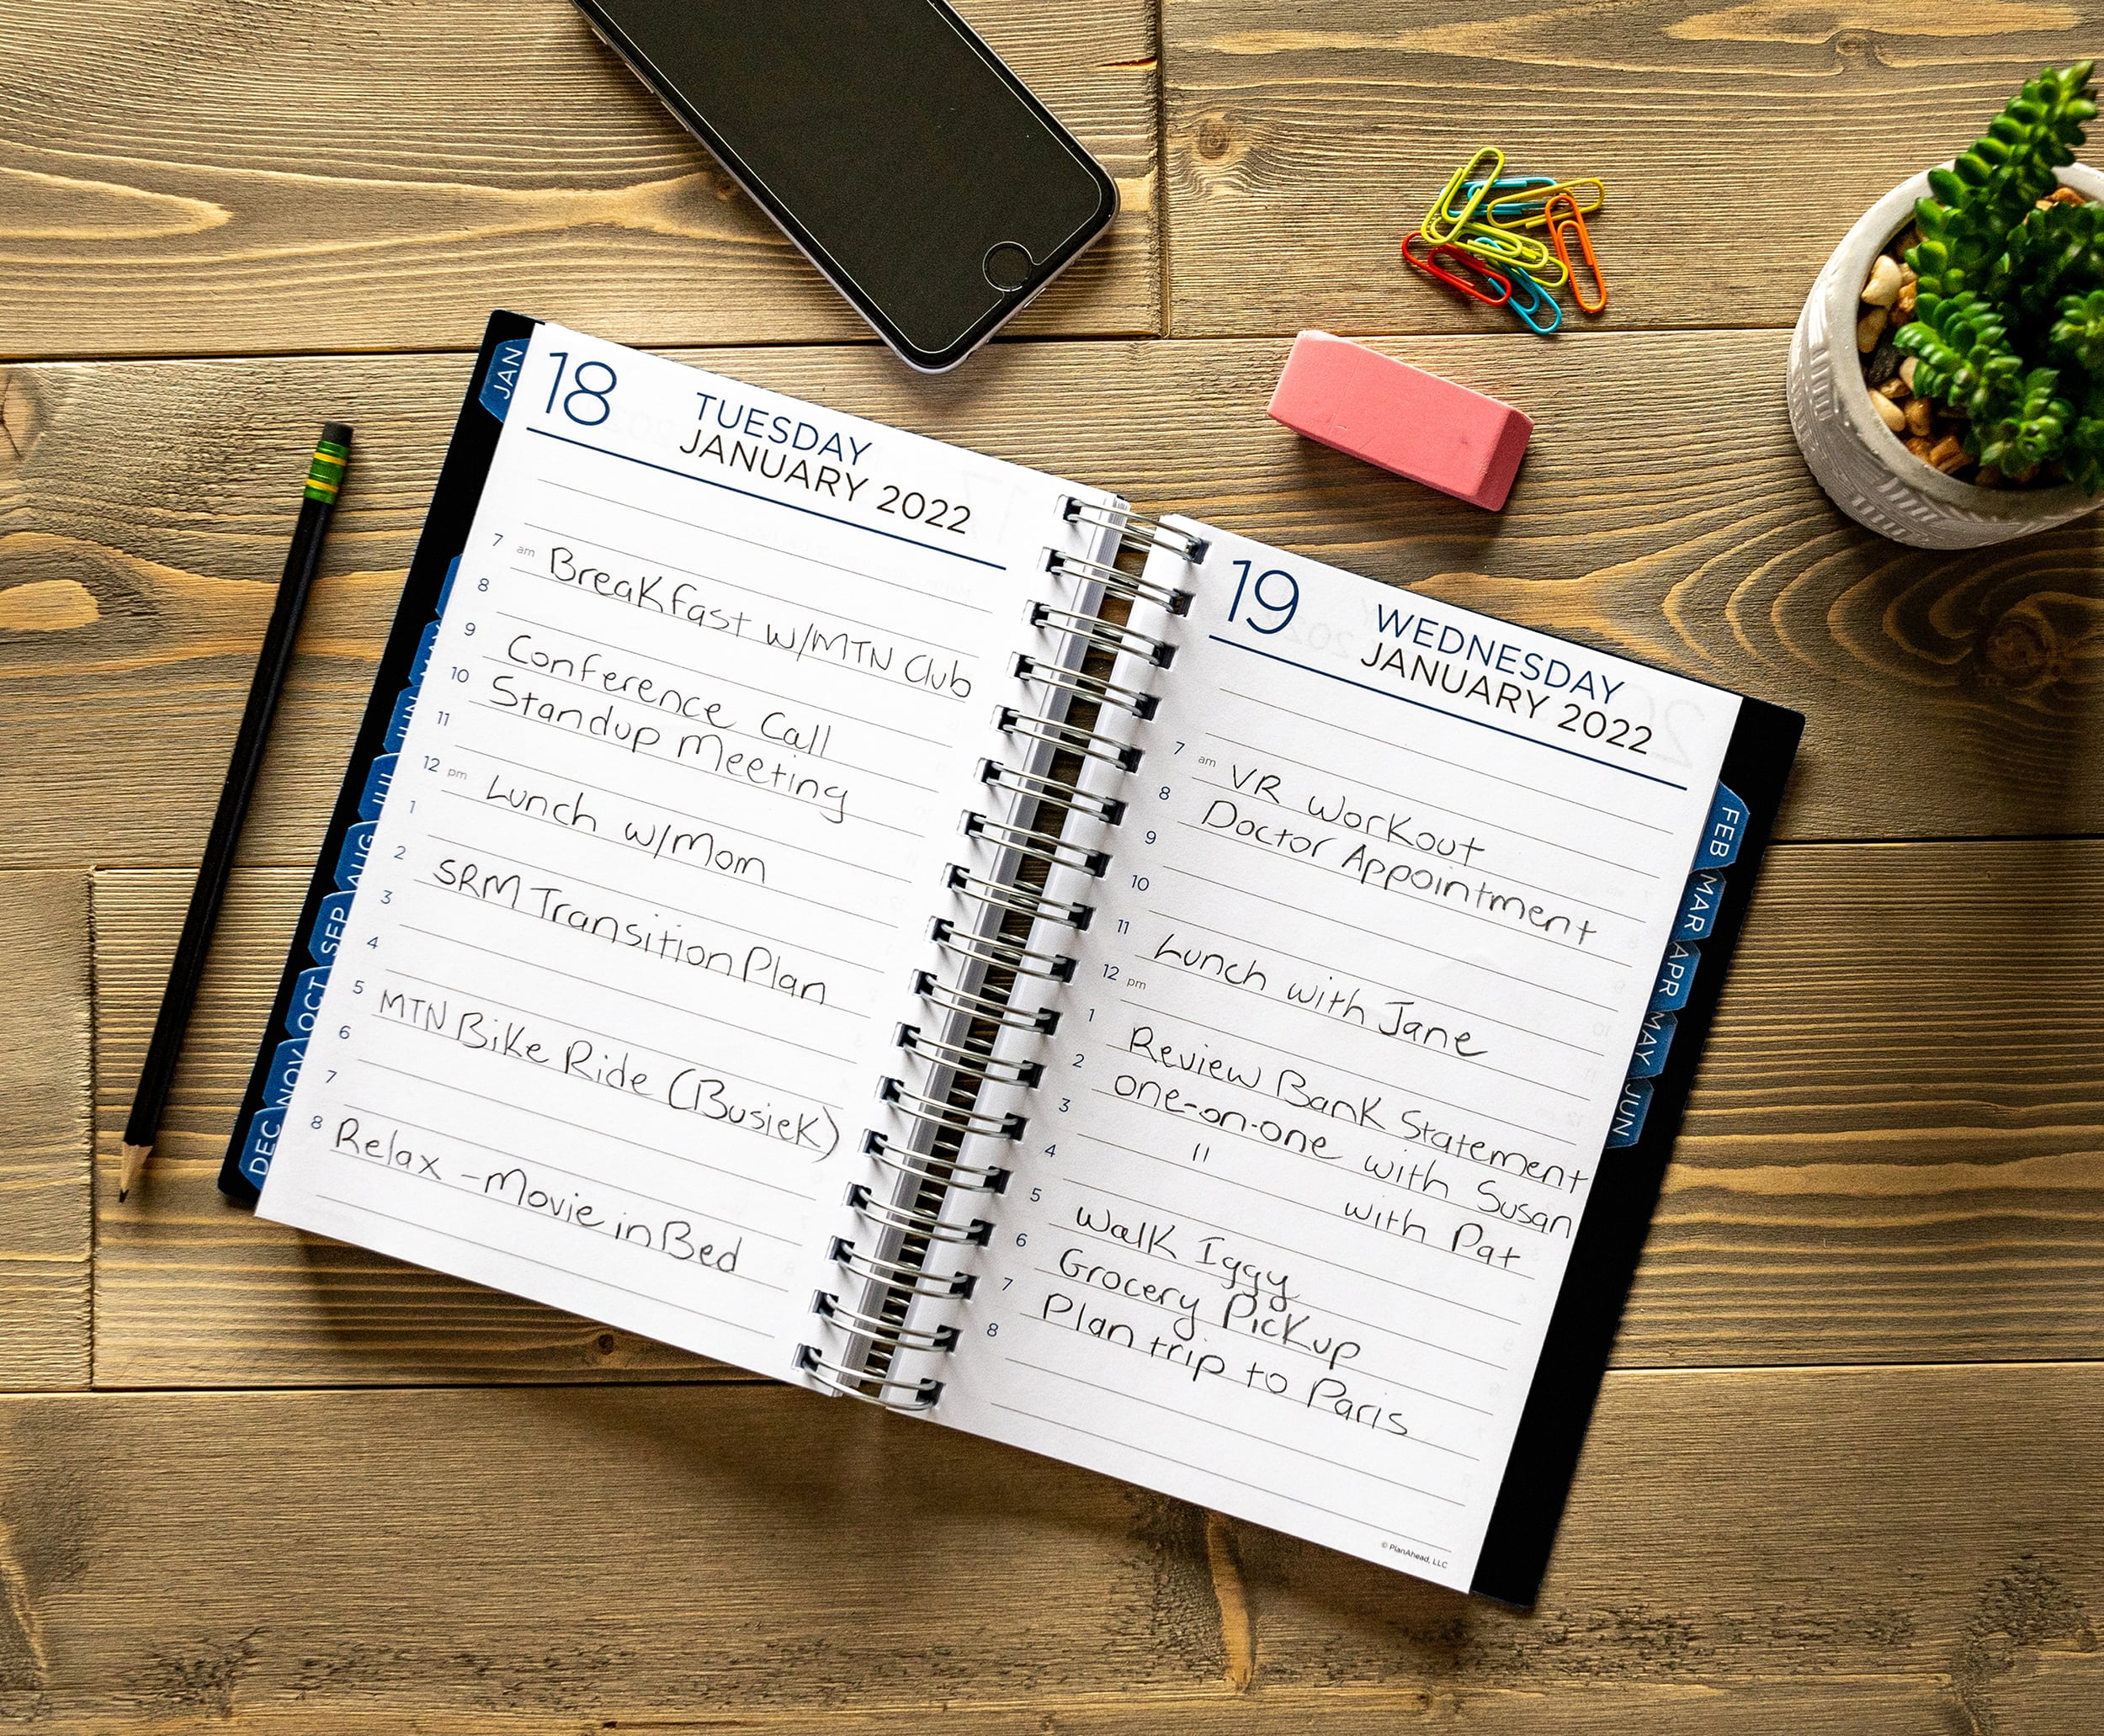 JAN
18
TUESDAY
JANUARY 2022
7 am Breakfast w/MTN Club
8
9 Conference Call
10 Standup Meeting
11
12 pm Lunch w/Mom
1
2 SRM Transition Plan
3
4
5 MTN Bike Ride (Busiek)
6
7
8 Relax - Movie in Bed
JUN
JUL
AUG
SEP
OCT
NOV
DEC
19
WEDNESDAY
JANUARY 2022
7 am VR Workout
8 Doctor Appointment
9
10
11 Lunch with Jane
12 pm
1 Review Bank Statement
2 one-on-one with Susan
3 " with Pat
4
5 Walk Iggy
6 Grocery Pickup
7 Plan trip to Paris
8
© PlanAhead, LLC
FEB
MAR
APR
MAY
JUN